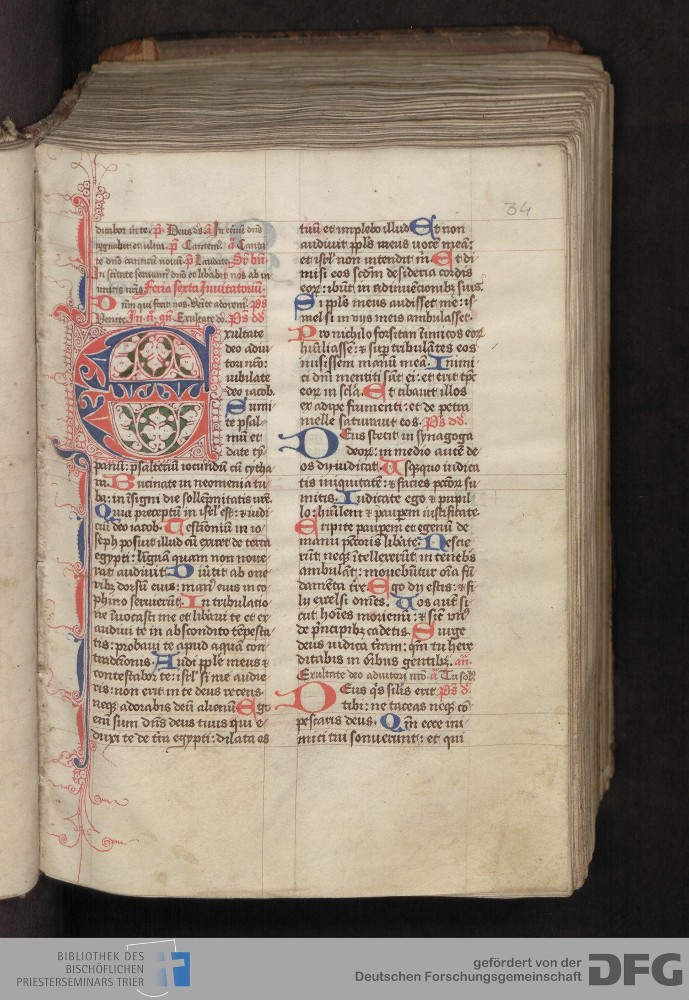 34
ducibor in te. p̄. Deus ds̄ a̅ In et̄nū dn̄s
regnabit et ultra. p̄ Cantem̄. a̅ Canta
te dn̄o canticū nouū. p̄ Laudate.
In sc̄itate seruiam̄ dn̄o et lib̄abit nos ab in
imicis nr̄is Feria sexta Inuitatoriū.
Dn̄m qui fecit nos. Venite adorem̄. Ps̄
Venite. Exultate do. Ps̄ ds̄
Exultate
deo adiu
tori nr̄o:
iubilate
deo iacob.
Sumi
te psal
mū et
date ty̅
panū: psalteriū iocundū cū cytha
ra. Bucinate in neomenia tu
ba: in īsigni die sollēpnitatis ur̄e.
Quia preceptū in isr̄l est: et iudi
ciū deo iacob. Testīoniū in io
seph posuit illud cū exiret de terra
egypti: līguā quam non noue
rat audiuit. Diuītit ab one
ribꝫ dorsū eius: manꝰ eius in co
phino seruierūt. In tribulatio
ne īuocasti me et lib̄aui te et ex
audiui te in abscondito tēpesta
tis: probaui te apud aquā con
tradc̄onis. Audi pp̄le meus et
contestabor te: isr̄l si me audie
ris: non erit in te deus recens
neqꝫ adorabis deū alienū. Ego
enī sum dn̄s deus tuus qui e
duxi te de tr̄a egypti: dilata os
tuū et implebo illud. Et non
audiuit pp̄ls meus uocē meā:
et isr̄l non intendit m̅. Et di
misi eos scd̄m desideria cordis
eoꝝ: ibūt in adinuēcionibꝫ suis.
Si pp̄ls meus audisset me: is
rael si in uijs meis ambulasset.
Pro nichilo forsitan īimicos eoꝝ
hūiliasse: et sup̄ tribulātes eos
misissem manū meā. Inimi
ci dn̄i mentiti sūt ei: et erit tp̄s
eoꝝ in scl̄a. Et cibauit illos
ex adipe frumenti: et de petra
melle saturauit eos. Ps̄ dd̄.
Deus stetit in synagoga
deoꝝ: in medio autē de
os dijudicat. Usqꝫquo iudica
tis iniquitatē: et facies pcc̄oꝝ su
mitis. Iudicate egō et pupil
lo: hūilem et paup̄em iustificate.
Eripite paup̄em: et egenū de
manu pc̄toris lib̄ate. Nescie
rūt neqꝫ ītellexerūt in tenebris
ambulāt: mouebūtur oīa fū
damēta tr̄e. Ego dixi dij estis: et fi
lij excelsi om̄s. Uos autē si
cut hoīes moriemī: et sic̄ unꝰ
de p̄ncipibꝫ cadetis. Surge
deus iudica tr̄am: qm̄ tu here
ditabis in om̄ibus gentibꝫ. an̄.
Exultate deo adiutorj nr̄o a̅ Tu solꝰ
Deus qͥs sil̄is erit Ps̄ d̄.
tibi: ne taceas neqꝫ cō
pescaris deus. Qm̄ ecce ini
mici tui sonuerunt: et qui
BIBLIOTHEK DES
BISCHÖFLICHEN
PRIESTERSEMINARS TRIER
gefördert von der
Deutschen Forschungsgemeinschaft
DFG